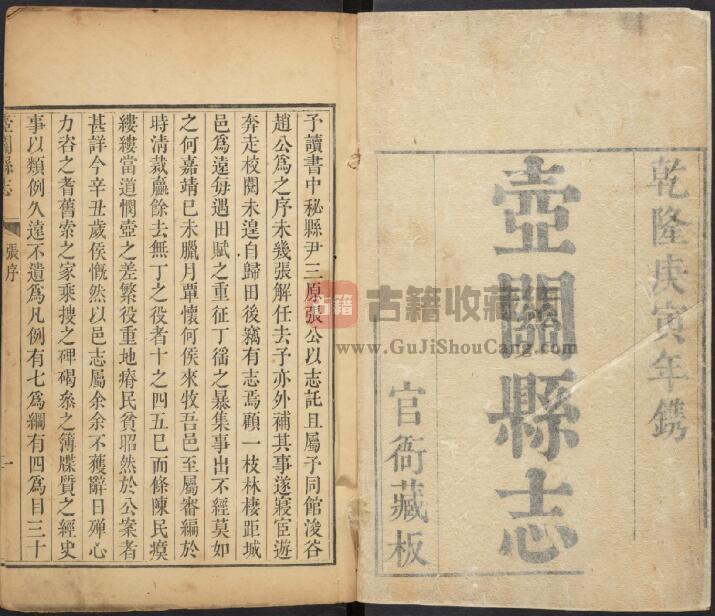 乾隆庚寅年鐫
壺關縣志
官衙藏板
古籍
古籍收藏
www.GuJiShouCang.com
予讀書中秘縣尹三原張公以志託且屬予同館浚谷
趙公爲之序未幾張解任去予亦外補其事遂寢宦遊
奔走校閱未遑自歸田後竊有志焉顧一枝林棲距城
邑爲遠每遇田賦之重征丁徭之暴集事出不經莫如
之何嘉靖巳未臘月覃懷何侯來牧吾邑至屬審編於
時清裁羸餘去無丁之役者十之四五巳而條陳民瘼
縷縷當道憫壺之差繁役重地瘠民貧昭然於公案者
甚詳今辛丑歲侯慨然以邑志屬余余不獲辭日殫心
力咨之耆舊索之家乘搜之碑碣叅之簿牒質之經史
事以類例久遠不遺爲凡例有七爲綱有四爲目三十
壺關縣志
張序
一